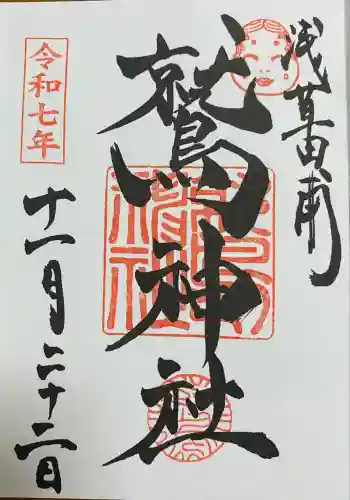 浅草田甫
鷲神社
令和七年
十一月二十二日